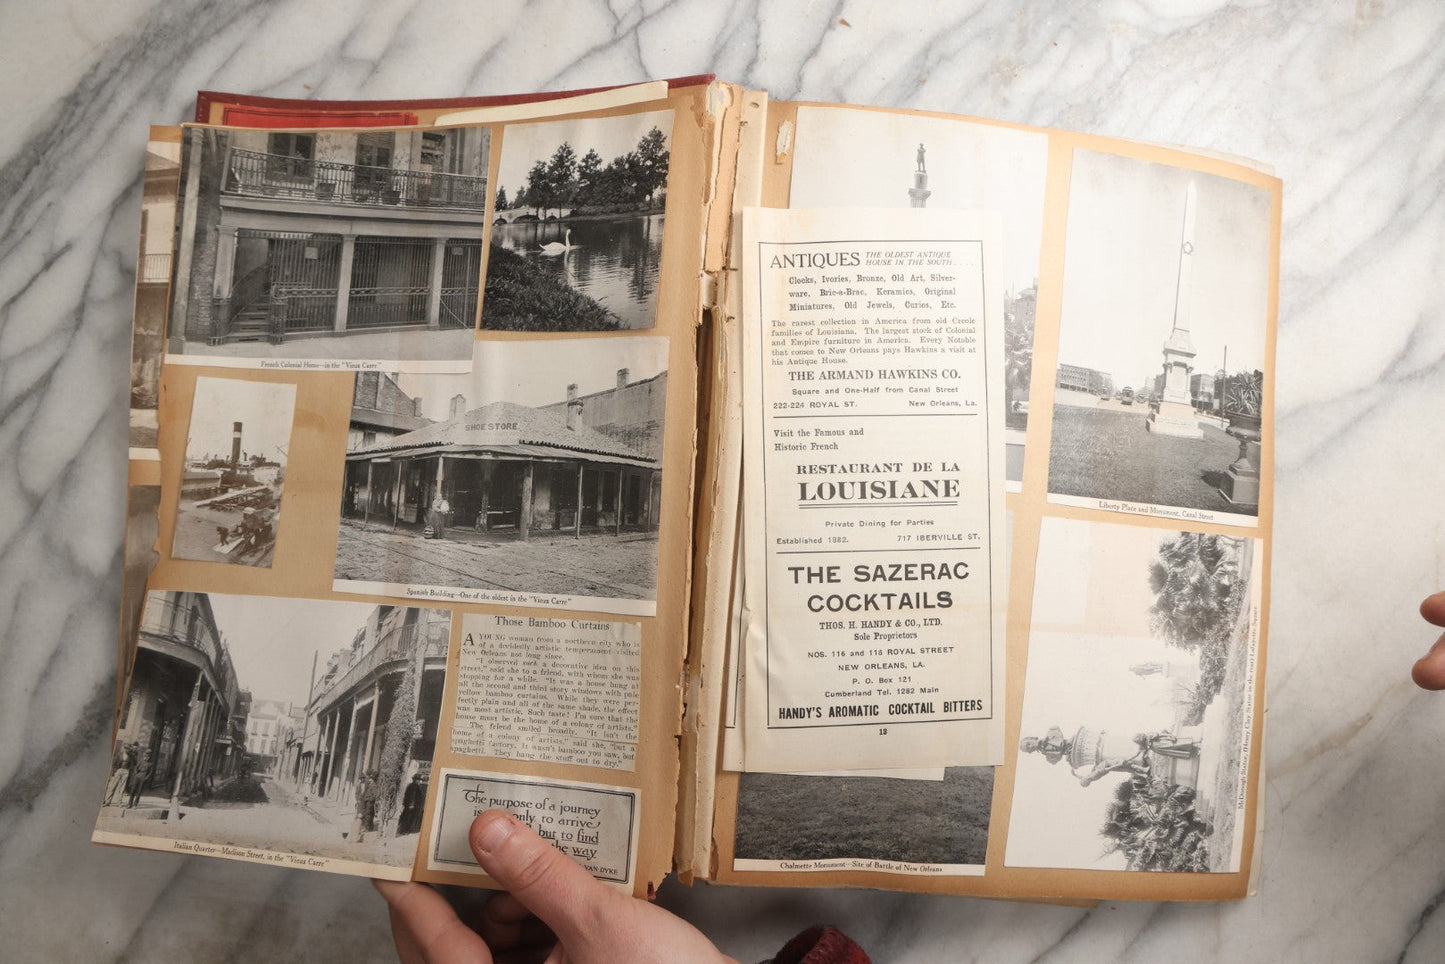 French Colonial Home—in the "Vieux Carre"
SHOE STORE
Spanish Building—One of the oldest in the "Vieux Carre"
Italian Quarter—Madison Street, in the "Vieux Carre"
Those Bamboo Curtains
A YOUNG woman from a northern city who is
of a decidedly artistic temperament visited
New Orleans not long since.
"I observed such a decorative idea on this
street," said she to a friend, with whom she was
stopping for a while. "It was a house hung at
all the second and third story windows with pale
yellow bamboo curtains. While they were per-
fectly plain and all of the same shade, the effect
was most artistic. Such taste! I'm sure that the
house must be the home of a colony of artists."
The friend smiled broadly. "It isn't the
home of a colony of artists," said she, "but a
spaghetti factory. It wasn't bamboo you saw, but
spaghetti. They hang the stuff out to dry."
The purpose of a journey
is only to arrive
but to find
the way
VAN DYKE
ANTIQUES THE OLDEST ANTIQUE
HOUSE IN THE SOUTH....
Clocks, Ivories, Bronze, Old Art, Silver-
ware, Bric-a-Brac, Keramics, Original
Miniatures, Old Jewels, Curios, Etc.
The rarest collection in America from old Creole
families of Louisiana. The largest stock of Colonial
and Empire furniture in America. Every Notable
that comes to New Orleans pays Hawkins a visit at
his Antique House.
THE ARMAND HAWKINS CO.
Square and One-Half from Canal Street
222-224 ROYAL ST. New Orleans, La.
Visit the Famous and
Historic French
RESTAURANT DE LA
LOUISIANE
Private Dining for Parties
Established 1882. 717 IBERVILLE ST.
THE SAZERAC
COCKTAILS
THOS. H. HANDY & CO., LTD.
Sole Proprietors
NOS. 116 and 118 ROYAL STREET
NEW ORLEANS, LA.
P. O. Box 121
Cumberland Tel. 1282 Main
HANDY'S AROMATIC COCKTAIL BITTERS
18
Chalmette Monument—Site of Battle of New Orleans
Liberty Place and Monument, Canal Street
McDonough Statue (Henry Clay Statue in the rear) Lafayette Square